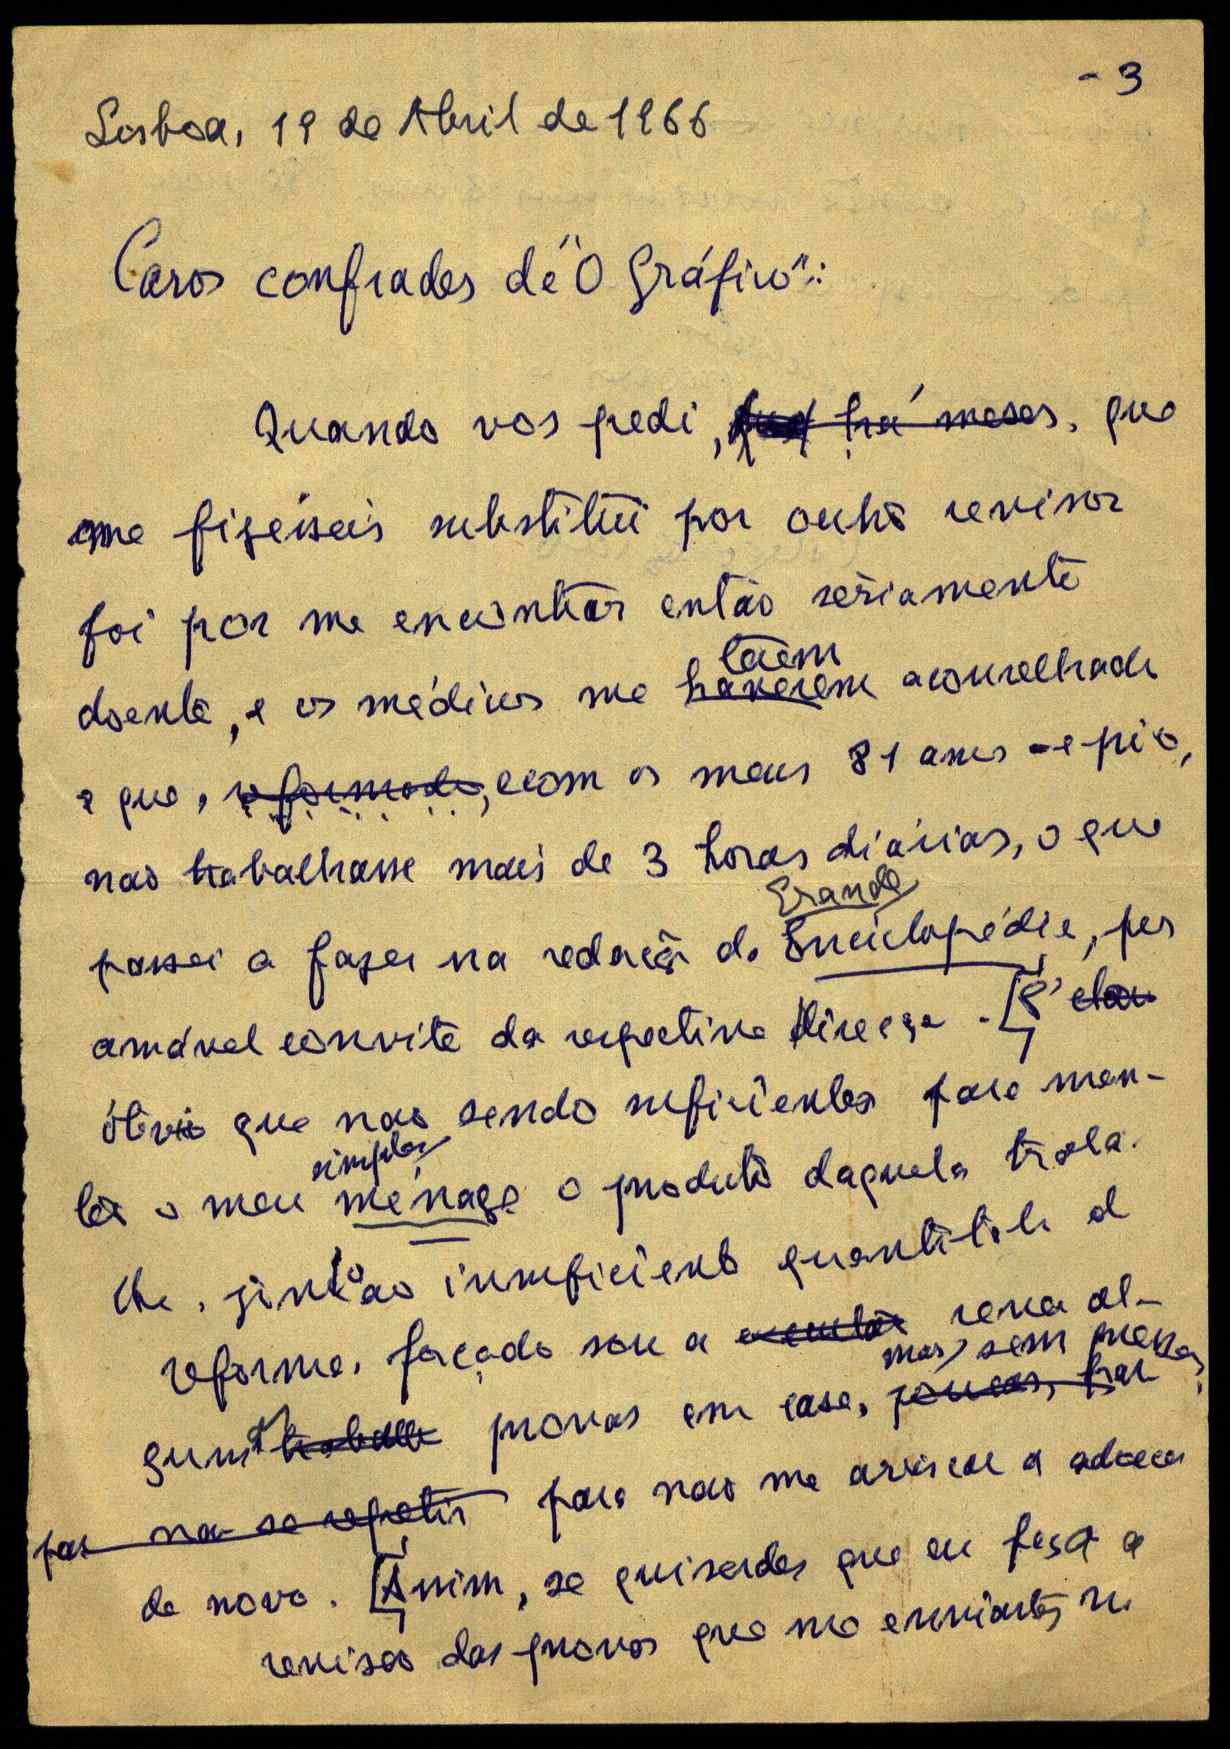 - 3
Lisboa, 19 de Abril de 1966
Caros confrades de "O Gráfico":
Quando vos pedi, há meses, que
me fizésseis substituir por outro revisor
foi por me encontrar então sèriamente
doente, e os médicos me haverem aconselhado
terem
a que, reformado, com os meus 81 anos e pico,
não trabalhasse mais de 3 horas diárias, o que
Grande
passei a fazer na redacção da Enciclopédia, por
amável convite da respectiva Direcção. [É claro
óbvio que não sendo suficientes para man-
simples
ter o meu ménage o produto daquele traba-
lho, junto ao insuficiente quantitativo da
reforma, forçado sou a rever al-
mas, sem pressa,
gumas trabalho provas em casa, poucas,
não se repetir para não me arriscar a adoecer
de novo. [Assim, se quiserdes que eu faça a
revisão das provas que me enviastes